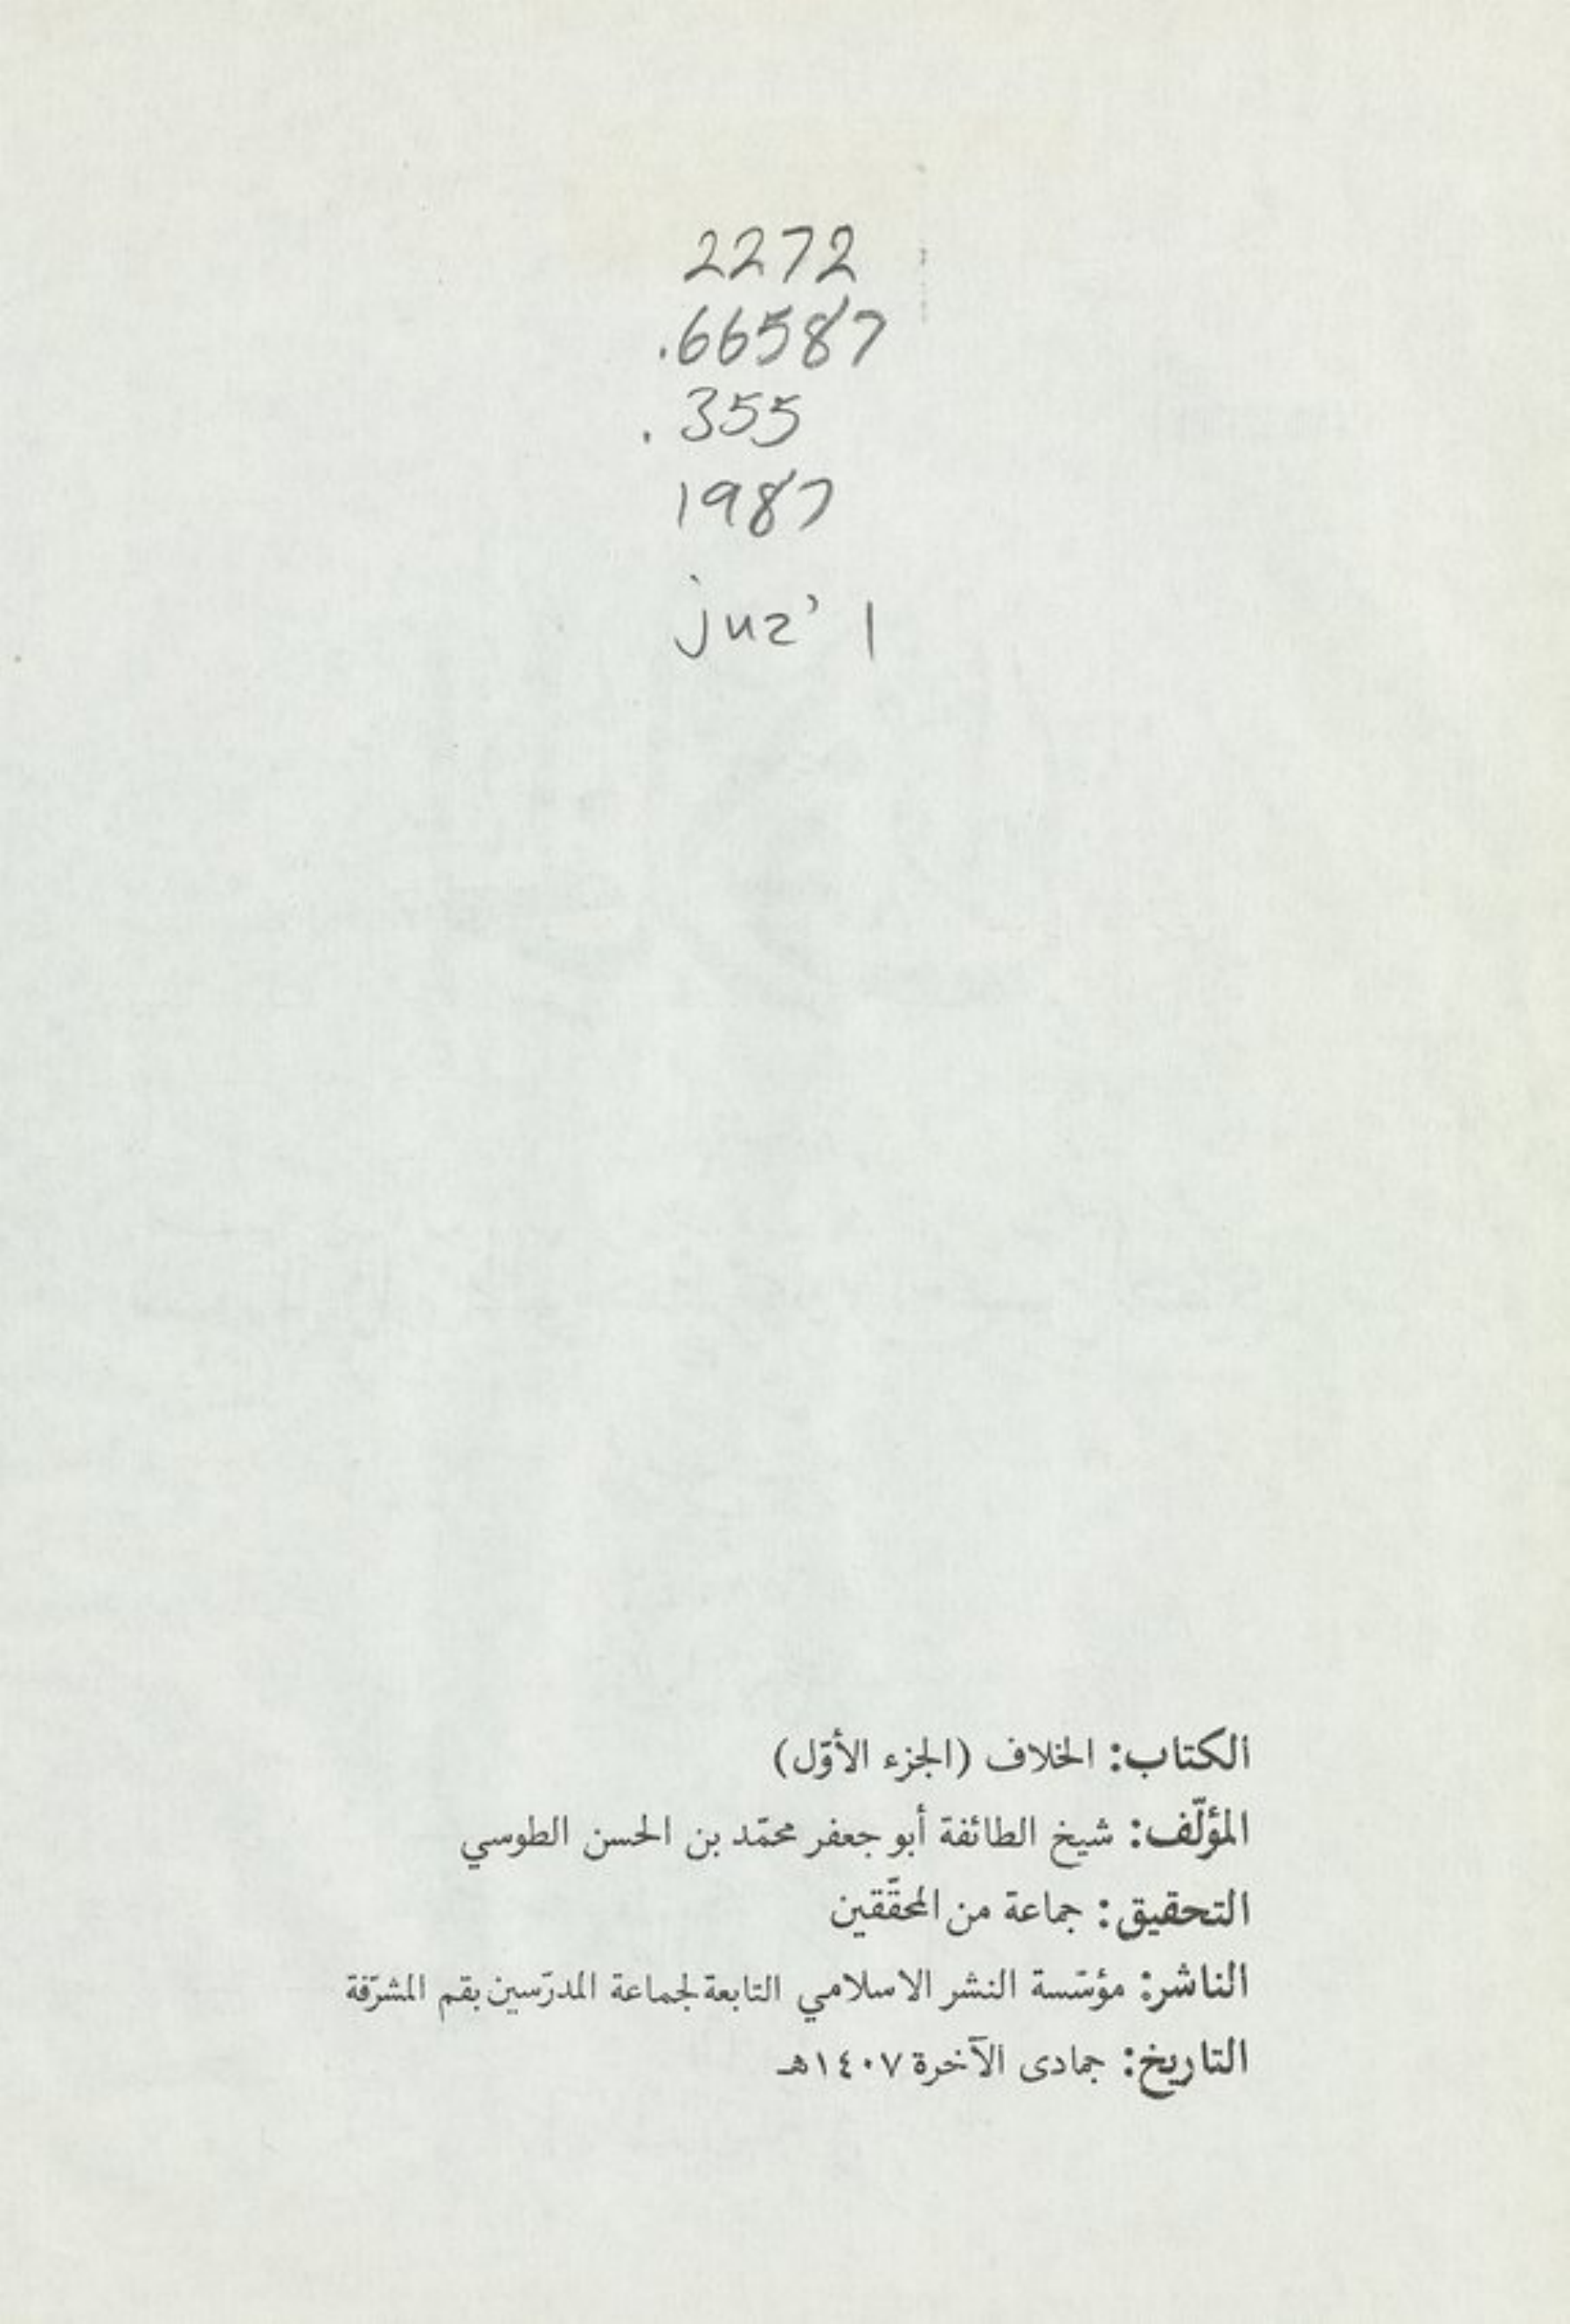 2272
.66587
.355
1987
juz' 1
الكتاب: الخلاف (الجزء الأوّل)
المؤلّف: شيخ الطائفة أبو جعفر محمّد بن الحسن الطوسي
التحقيق: جماعة من المحقّقين
الناشر: مؤسّسة النشر الاسلامي التابعة لجماعة المدرّسين بقم المشرّفة
التاريخ: جمادى الآخرة ١٤٠٧هـ